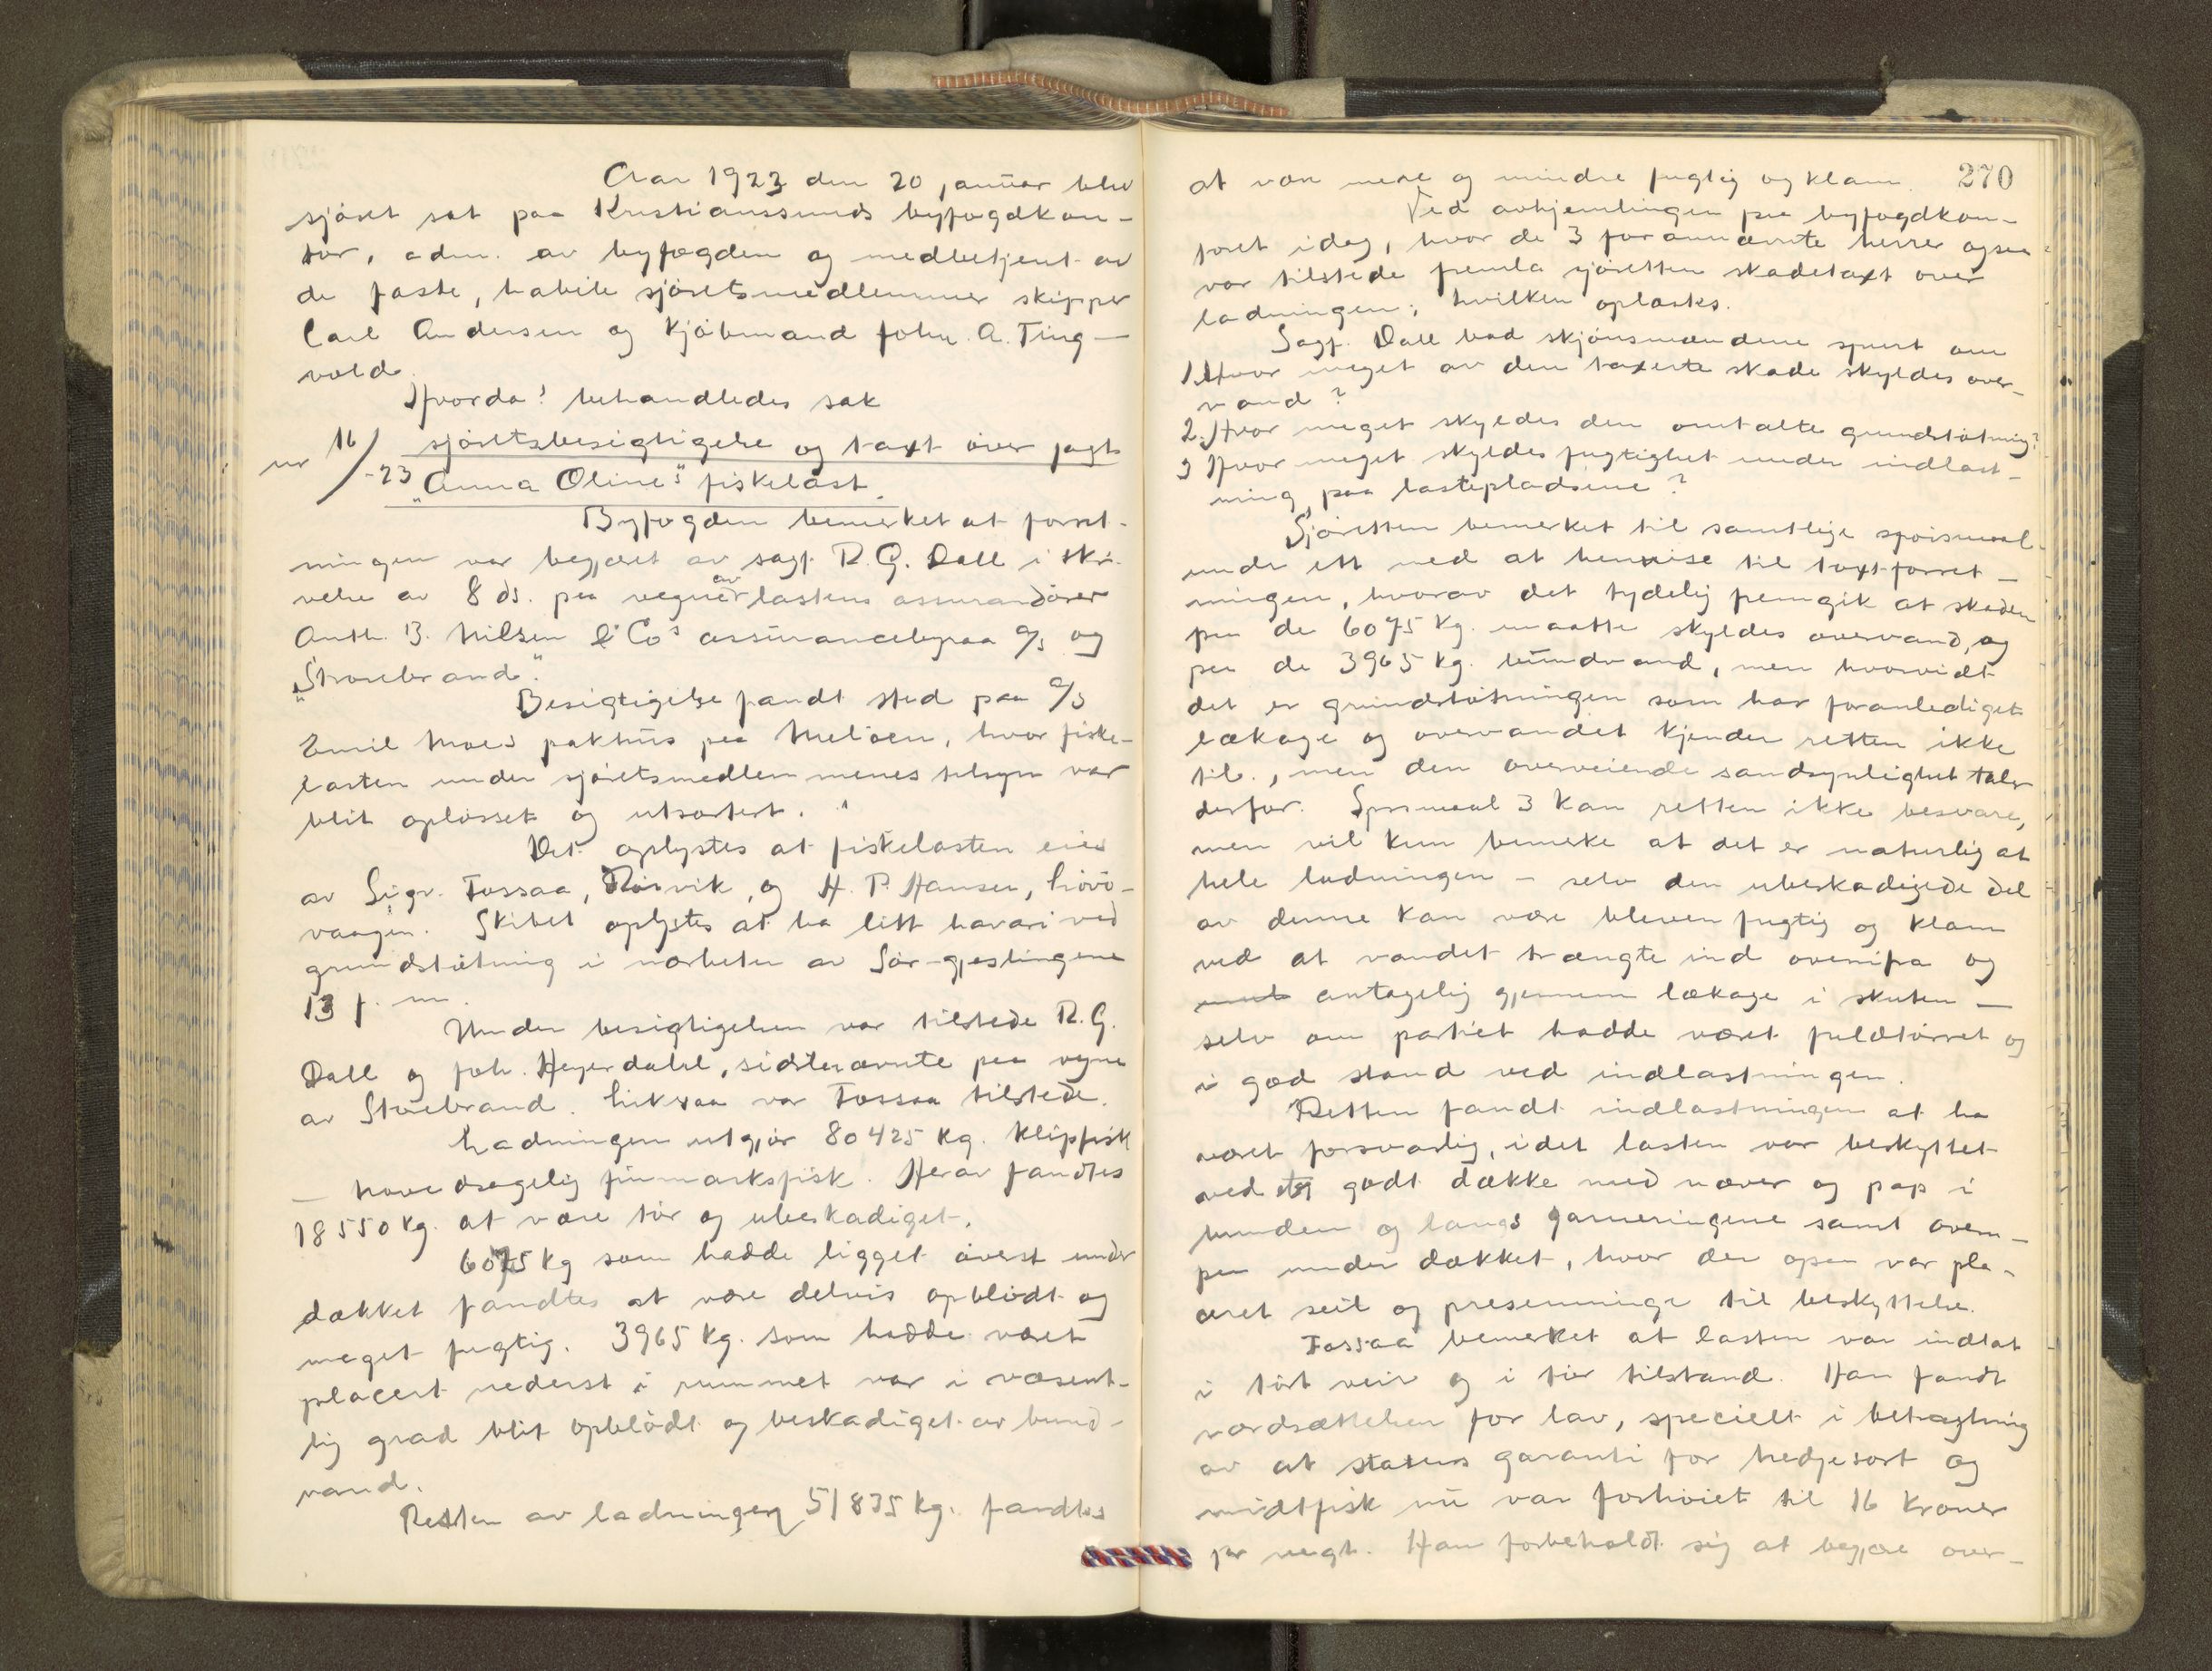 Aar 1923 den 20 januar blev
sjöret sat paa Kristianssunds byfogdkon-
tor, adm. av byfogden og medbetjent av
de faste, habile sjöretsmedlemmer skipper
Carl Andersen og kjöbmand John. A. Ting-
vold.
Hvorda! behandledes sak
nr 16/-23 sjöretsbesigtigelse og taxt över jagt
"Anna Oline"s fiskelast.
Byfogden bemerket at forret-
ningen var begjæret av sagf. R. G. Dall i skri-
velse av 8 ds. paa vegne av lastens assurandörer
Anth. B. Nilsen & Co's assurancebyraa a/s og
"Storebrand".
Besigtigelse fandt sted paa a/s
Emil Moes pakhus paa Melöen, hvor fiske-
lasten under sjöretsmedlemmenes tilsyn var
blit oplosset og utsortert.
Det oplystes at fiskelasten eies
av Sigv. Fossaa, Rörvik, og H. P. Hansen, Lövö-
vaagen. Skibet oplystes at ha litt havari ved
grundstötning i nærheten av Sör-gjeslingene
13 f. m.
Under besigtigelsen var tilstede R. G.
Dall og joh. Heyerdahl, sidstnævnte paa vegne
av Storebrand. Likesaa var Fossaa tilstede.
Ladningen utgjör 80425 kg. klipfisk
— hovedsagelig finmarksfisk. Herav fandtes
18550 kg. at være tör og ubeskadiget.
6075 kg som hadde ligget överst under
dækket fandtes at være delvis opblödt og
meget fugtig. 3965 kg. som hadde været
placert nederst i rummet var i væsent-
lig grad blit opblödt og beskadiget av bund-
vand.
Resten av ladningen 51835 kg. fandtes
270
at være mere og mindre fugtig og klam.
Ved avhjemlingen paa byfogdkon-
toret idag, hvor de 3 forannævnte herrer ogsaa
var tilstede fremla sjöretten skadetaxt over
ladningen; hvilken oplæstes.
Sagf. Dall bad skjönsmændene spurt om
1. Hvor meget av den taxerte skade skyldes over-
vand?
2. Hvor meget skyldes den omtalte grundstötning?
3 Hvor meget skyldes fugtighet under indlast-
ning paa lastepladsene?
Sjöretten bemerket til samtlige spörsmaal
under ett ved at henvise til taxt-forret-
ningen, hvorav det tydelig fremgik at skaden
paa de 6075 kg. maatte skyldes overvand, og
paa de 3965 kg. bundvand, men hvorvidt
det er grundstötningen som har foranlediget
lækage og overvandet kjender retten ikke
til., men den overveiende sandsynlighet taler
derfor. Spsmaal 3 kan retten ikke besvare,
men vil kun bemerke at det er naturlig at
hele ladningen — selv den ubeskadigede del
av denne kan være bleven fugtig og klam
ved at vandet trængte ind ovenifra og
antagelig gjennem lækage i skuten —
selv om partiet hadde været fuldtörret og
i god stand ved indlastningen.
Retten fandt indlastningen at ha
været forsvarlig, idet lasten var beskyttet
ved et godt dække med næver og pap i
bunden og langs garneringene samt oven-
paa under dækket, hvor der ogsaa var pla-
ceret seil og presenninge til beskyttelse.
Fossaa bemerket at lasten var indlat
i tört veir og i tör tilstand. Han fandt
værdsættelsen for lav, specielt i betragtning
av at statens garanti for tredjesort og
midtfisk nu var forhöiet til 16 kroner
pr vegt. Han forbeholdt sig at begjære over-